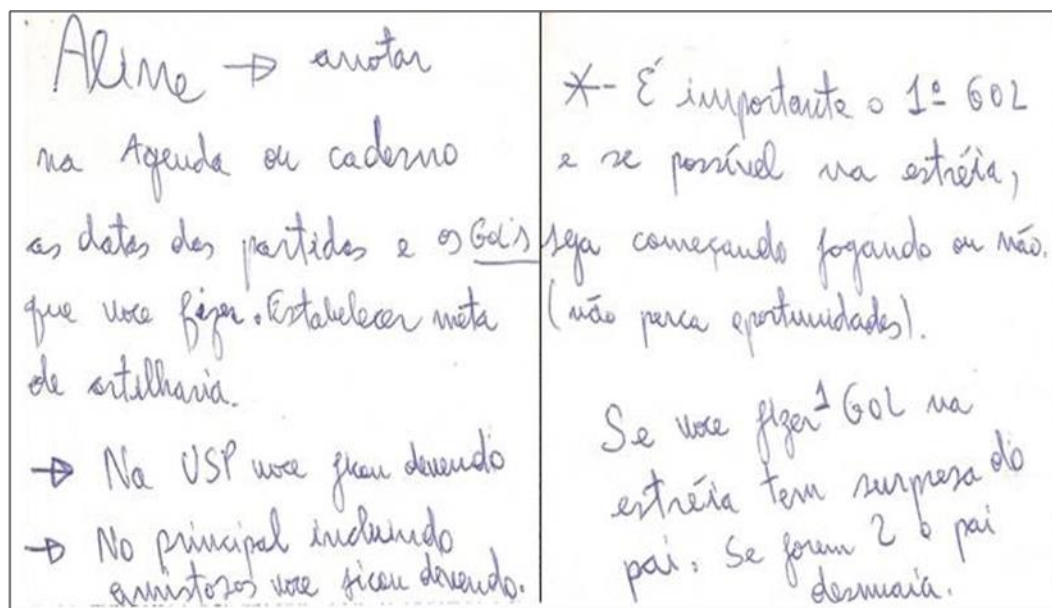 Aline → anotar
na Agenda ou caderno
as datas das partidas e os Gols
que voce fizer. Estabelecer meta
de artilharia.
→ Na USP voce ficou devendo
→ No principal incluindo
amistosos voce ficou devendo.
*- É importante o 1º GOL
e se possível na estréia,
seja começando jogando ou não.
(não perca oportunidades).
Se voce fizer 1 GOL na
estréia tem surpresa do
pai. Se forem 2 o pai
desmaia.